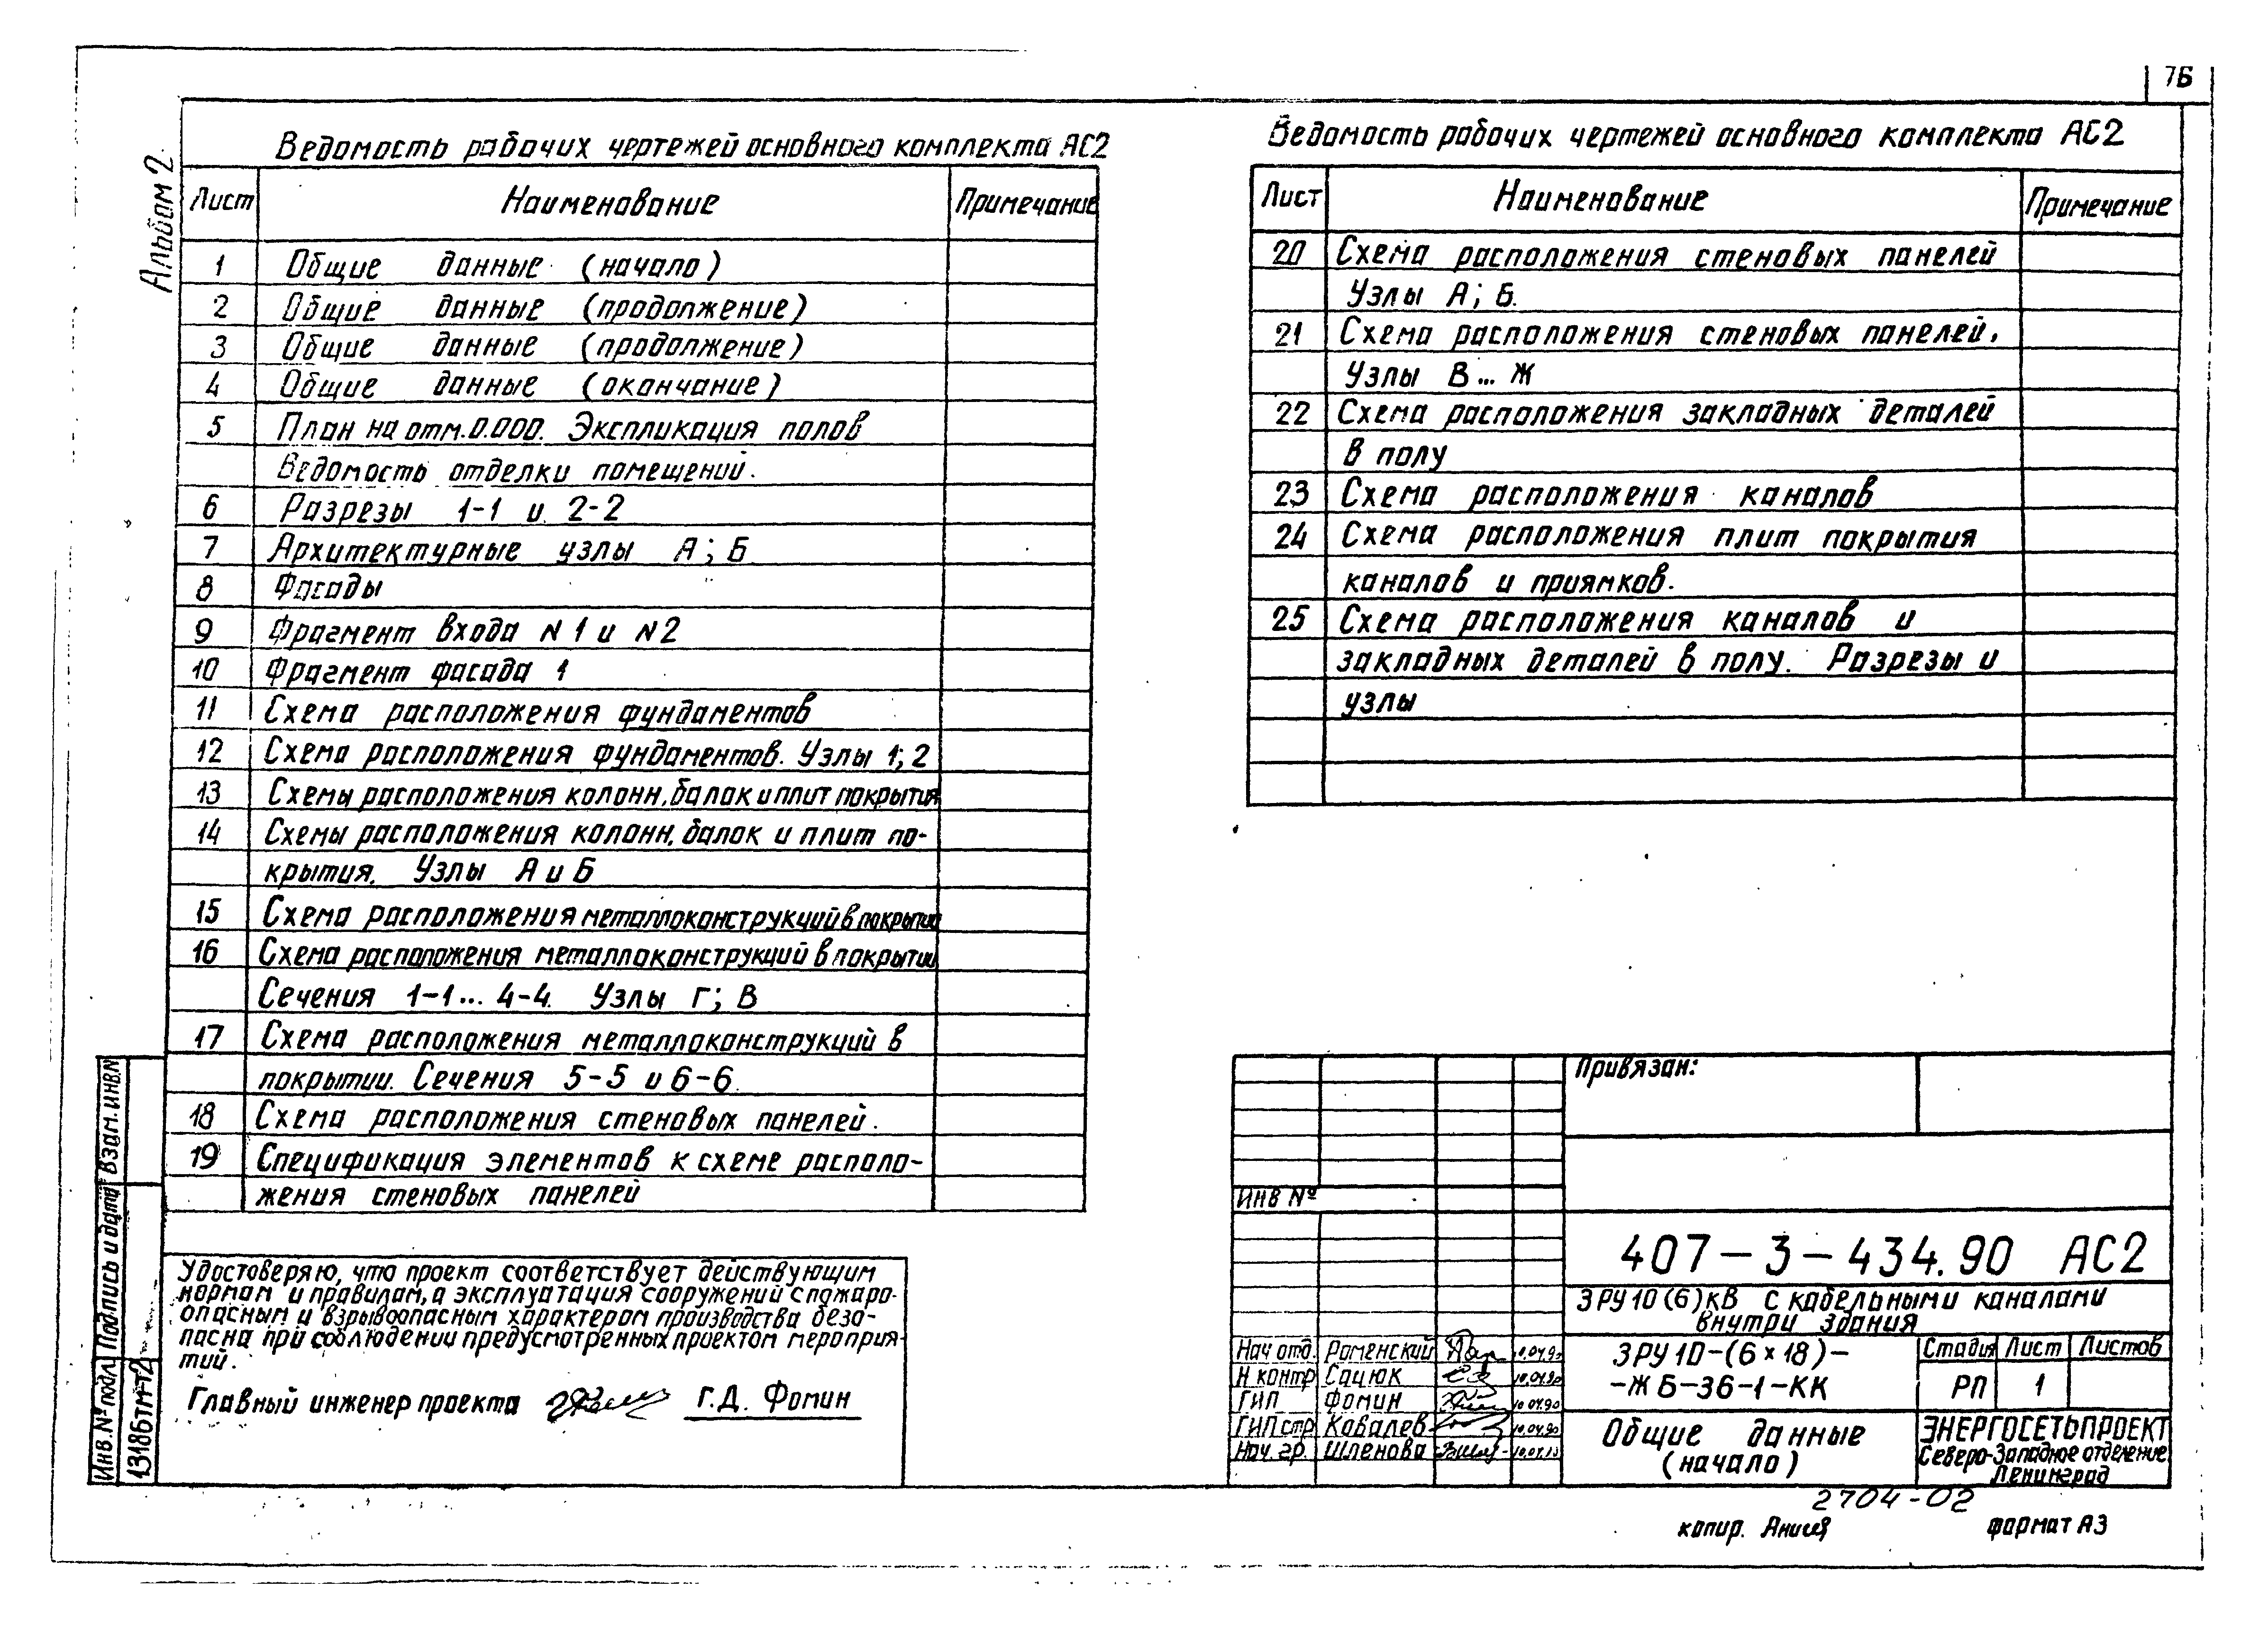 76
Альбом 2
Ведомость рабочих чертежей основного комплекта АС2
Лист Наименование Примечание
1 Общие данные (начало)
2 Общие данные (продолжение)
3 Общие данные (продолжение)
4 Общие данные (окончание)
5 План на отм. 0.000. Экспликация полов
Ведомость отделки помещений.
6 Разрезы 1-1 и 2-2
7 Архитектурные узлы А; Б
8 Фасады
9 Фрагмент входа N 1 и N 2
10 Фрагмент фасада 1
11 Схема расположения фундаментов
12 Схема расположения фундаментов. Узлы 1; 2
13 Схемы расположения колонн, балок и плит покрытия
14 Схемы расположения колонн, балок и плит по-
крытия. Узлы А и Б
15 Схема расположения металлоконструкций в покрытии
16 Схема расположения металлоконструкций в покрытии
Сечения 1-1... 4-4. Узлы Г; В
17 Схема расположения металлоконструкций в
покрытии. Сечения 5-5 и 6-6.
18 Схема расположения стеновых панелей.
19 Спецификация элементов к схеме располо-
жения стеновых панелей
Ведомость рабочих чертежей основного комплекта АС2
Лист Наименование Примечание
20 Схема расположения стеновых панелей
Узлы А; Б.
21 Схема расположения стеновых панелей.
Узлы В... Ж
22 Схема расположения закладных деталей
в полу
23 Схема расположения каналов
24 Схема расположения плит покрытия
каналов и приямков.
25 Схема расположения каналов и
закладных деталей в полу. Разрезы и
узлы
Удостоверяю, что проект соответствует действующим
нормам и правилам, а эксплуатация сооружений с пожаро-
опасным и взрывоопасным характером производства безо-
пасна при соблюдении предусмотренных проектом мероприя-
тий.
Главный инженер проекта Г.Д. Фомин
Взам. инв.N
Подпись и дата
Инв. № подл.
13186тм-т2
Привязан:
Инв №
407-3-434.90 АС2
ЗРУ 10 (6) кВ с кабельными каналами
внутри здания
Нач отд. Роменский 10.04.90
Н контр Сацюк 10.04.90
ГИП Фомин 10.04.90
ГИП стр Ковалев 10.04.90
Нач. гр. Шленова
ЗРУ 10-(6×18)-
-ЖБ-36-1-КК
Стадия Лист Листов
РП 1
Общие данные
(начало)
ЭНЕРГОСЕТЬПРОЕКТ
Северо-Западное отделение
Ленинград
2704-02
копир. формат А3